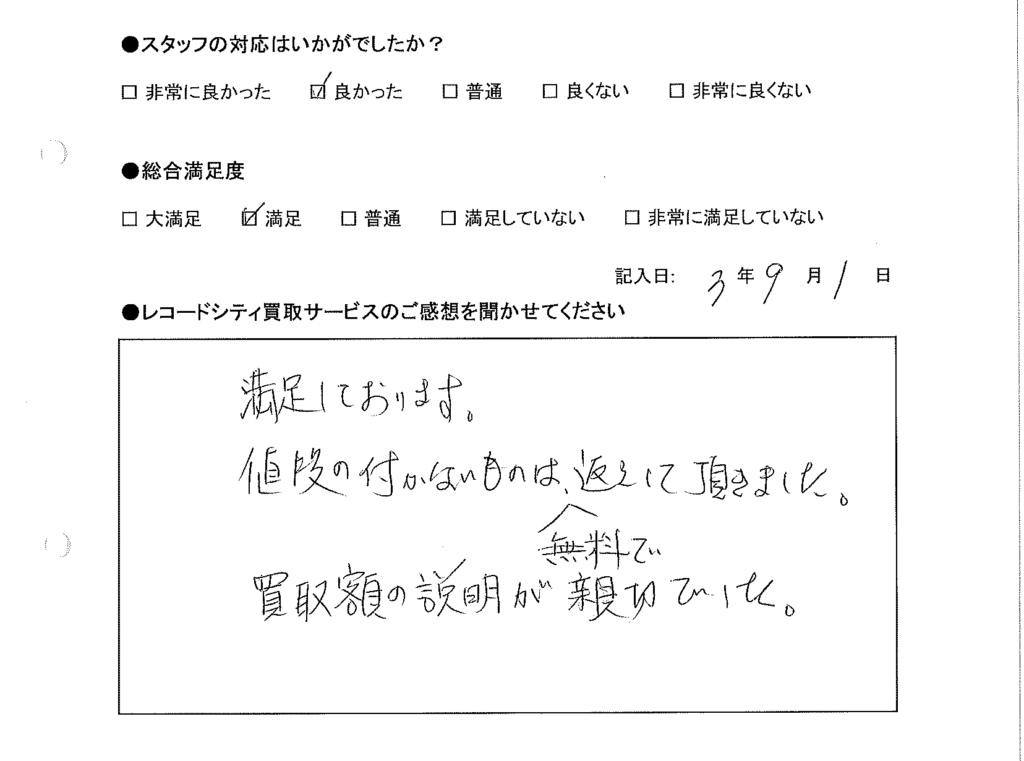 ●スタッフの対応はいかがでしたか？
□ 非常に良かった ☑ 良かった □ 普通 □ 良くない □ 非常に良くない
●総合満足度
□ 大満足 ☑ 満足 □ 普通 □ 満足していない □ 非常に満足していない
記入日: 3 年 9 月 1 日
●レコードシティ買取サービスのご感想を聞かせてください
満足しております。
値段の付かないものは、返えして頂きました。
無料で
買取額の説明が親切でした。